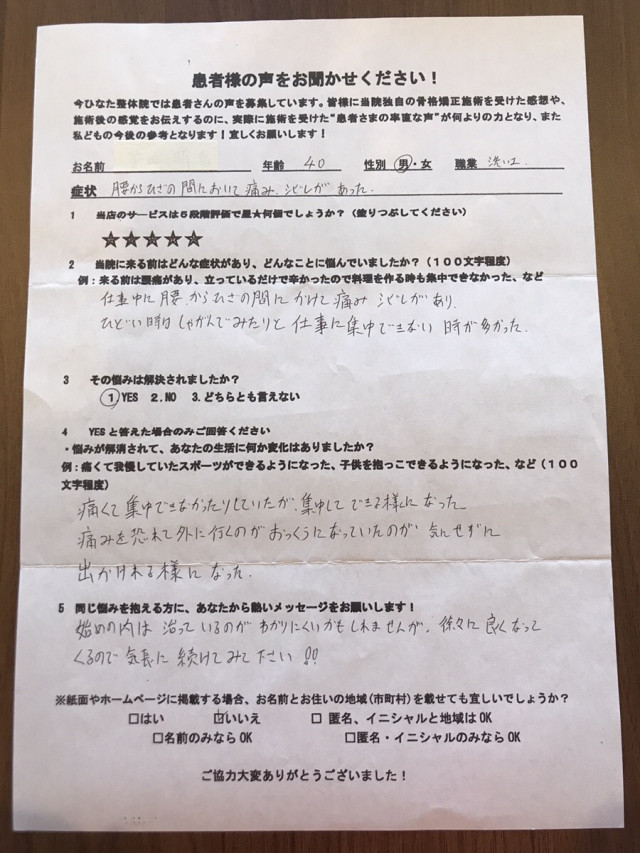 患者様の声をお聞かせください！
今ひなた整体院では患者さんの声を募集しています。皆様に当院独自の骨格矯正施術を受けた感想や、
施術後の感覚をお伝えするのに、実際に施術を受けた“患者さまの率直な声”が何よりの力となり、また
私どもの今後の参考となります！宜しくお願いします！
お名前 年齢 40 性別 男・女 職業 洗い工
症状 腰からひざの間において痛み、シビレがあった。
1 当店のサービスは5段階評価で星★何個でしょうか？（塗りつぶしてください）
☆☆☆☆☆
2 当院に来る前はどんな症状があり、どんなことに悩んでいましたか？（１００文字程度）
例：来る前は腰痛があり、立っているだけで辛かったので料理を作る時も集中できなかった、など
仕事中に腰からひざの間にかけて痛み シビレがあり、
ひどい時は しゃがんでみたりと 仕事に集中できない 時が多かった。
3 その悩みは解決されましたか？
1 YES 2.NO 3.どちらとも言えない
4 YESと答えた場合のみご回答ください
・悩みが解消されて、あなたの生活に何か変化はありましたか？
例：痛くて我慢していたスポーツができるようになった、子供を抱っこできるようになった、など（１００
文字程度）
痛くて集中できなかたりしていたが、集中して できる様になった
痛みを恐れて外に行くのが おっくうになっていたのが 気にせずに
出かけれる様になった。
5 同じ悩みを抱える方に、あなたから熱いメッセージをお願いします！
始めの内は 治っているのが わかりにくいかもしれませんが、徐々に良くなって
くるので 気長に 続けてみて下さい!!
※紙面やホームページに掲載する場合、お名前とお住いの地域（市町村）を載せても宜しいでしょうか？
□はい ☑いいえ □ 匿名、イニシャルと地域は OK
□名前のみなら OK □匿名・イニシャルのみなら OK
ご協力大変ありがとうございました！